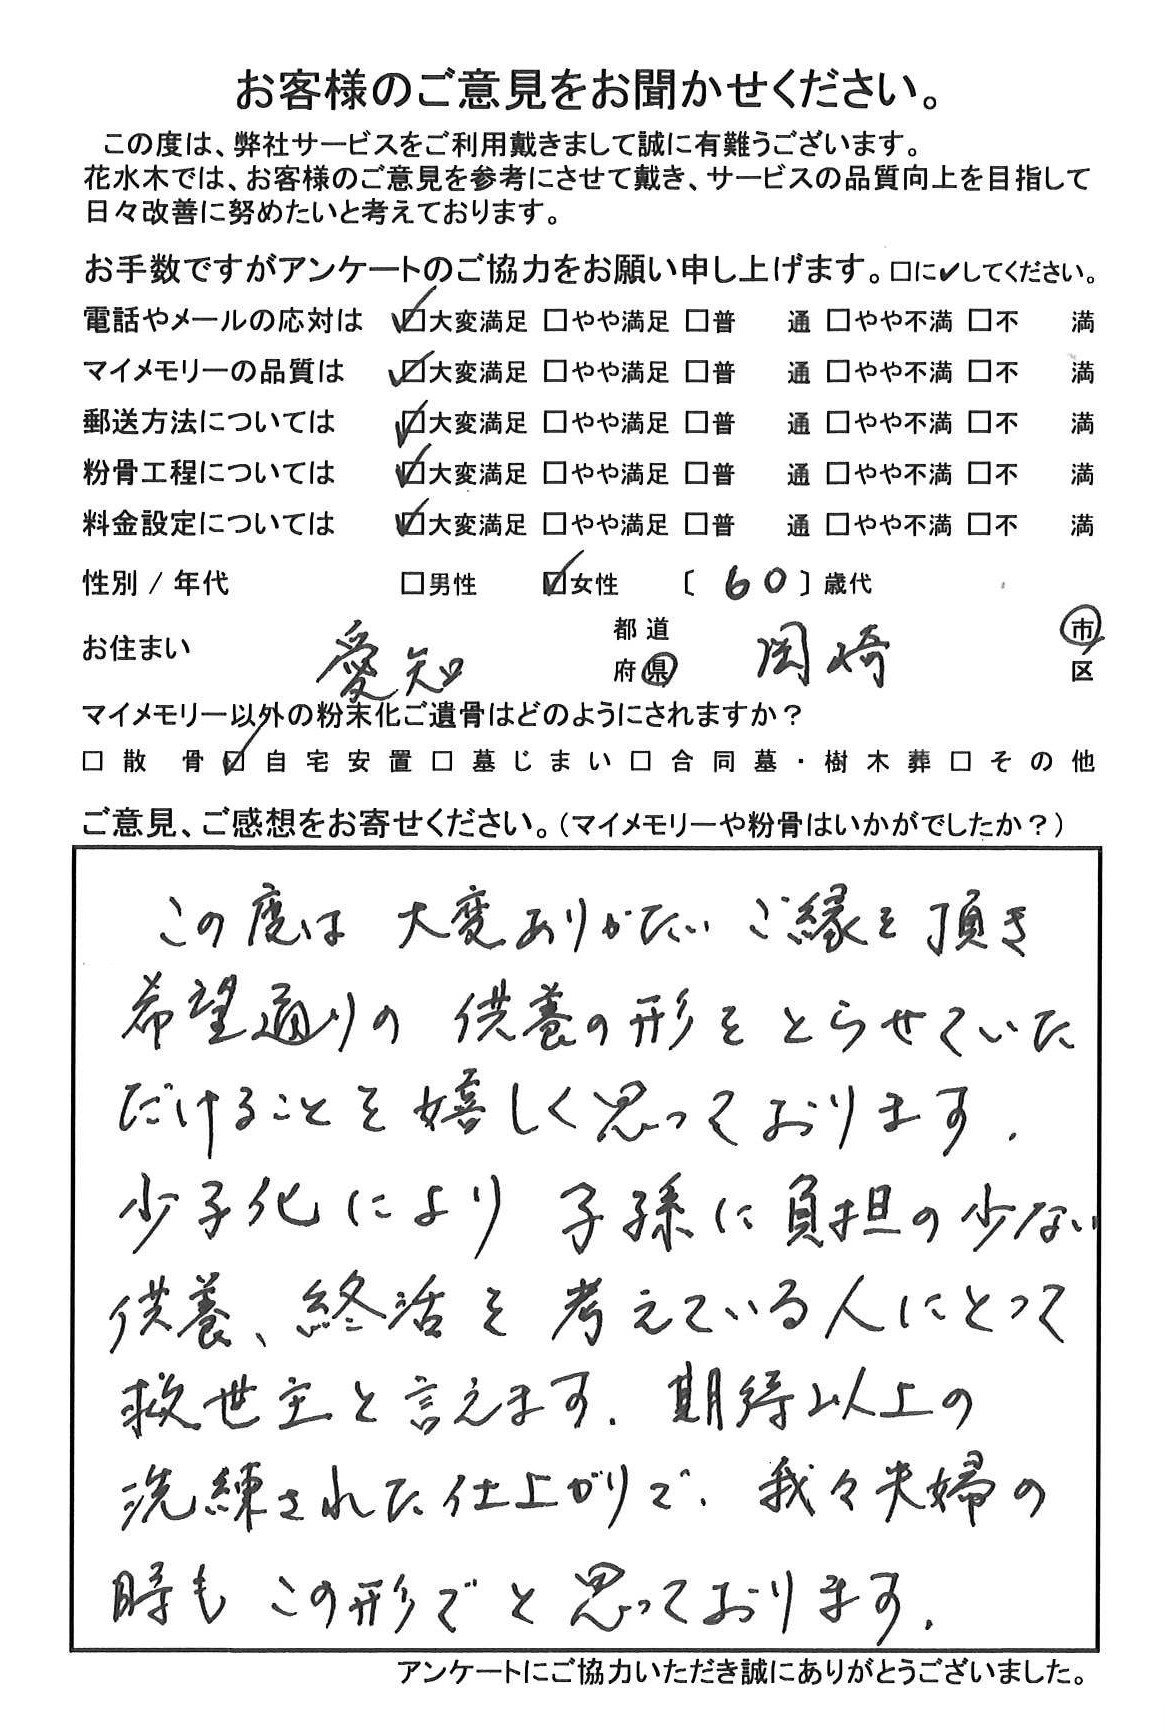 お客様のご意見をお聞かせください。
この度は、弊社サービスをご利用戴きまして誠に有難うございます。
花水木では、お客様のご意見を参考にさせて戴き、サービスの品質向上を目指して
日々改善に努めたいと考えております。
お手数ですがアンケートのご協力をお願い申し上げます。□に✔してください。
電話やメールの応対は ☑大変満足 □やや満足 □普 通 □やや不満 □不 満
マイメモリーの品質は ☑大変満足 □やや満足 □普 通 □やや不満 □不 満
郵送方法については ☑大変満足 □やや満足 □普 通 □やや不満 □不 満
粉骨工程については ☑大変満足 □やや満足 □普 通 □やや不満 □不 満
料金設定については ☑大変満足 □やや満足 □普 通 □やや不満 □不 満
性別 / 年代 □男性 ☑女性 〔 60 〕歳代
お住まい 愛知 都道府県 岡崎 市区
マイメモリー以外の粉末化ご遺骨はどのようにされますか？
□散 骨 ☑自宅安置 □墓じまい □合同墓・樹木葬 □その他
ご意見、ご感想をお寄せください。（マイメモリーや粉骨はいかがでしたか？）
この度は 大変ありがたい ご縁を頂き
希望通りの 供養の形を とらせていた
だけることを嬉しく思っております.
少子化により 子孫に負担の少ない
供養、終活を 考えている人にとって
救世主と言えます. 期待以上の
洗練された仕上がりで、我々夫婦の
時も この形でと思っております.
アンケートにご協力いただき誠にありがとうございました。